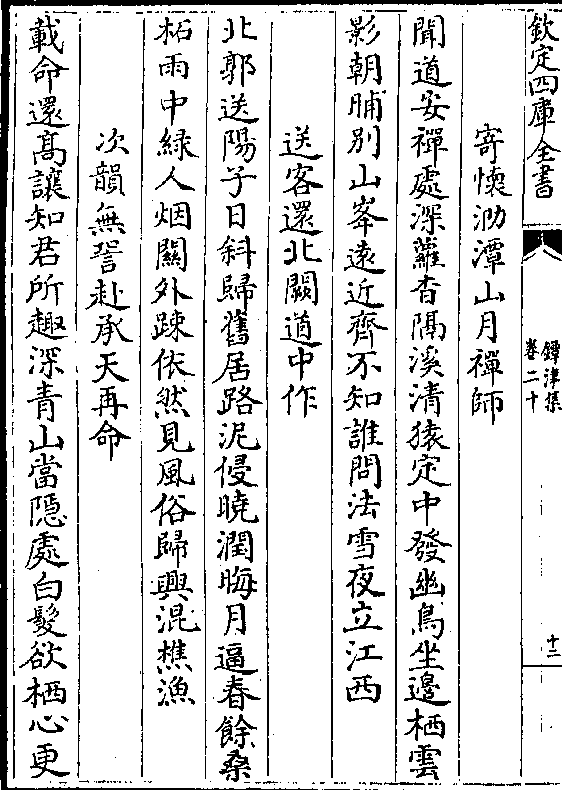 欽定四庫全書
鐔津集
卷二十
十二
寄懷泐潭山月禪師
聞道安禪處深蘿杳隔溪清猿定中發幽鳥坐邊栖雲
影朝晡別山峯遠近齊不知誰問法雪夜立江西
送客還北闕道中作
北郭送陽子日斜歸舊居路泥侵曉潤晦月逼春餘桑
柘雨中綠人烟關外踈依然見風俗歸興混樵漁
次韻無詧赴承天再命
載命還髙讓知君所趣深青山當隠處白髮欲栖心更